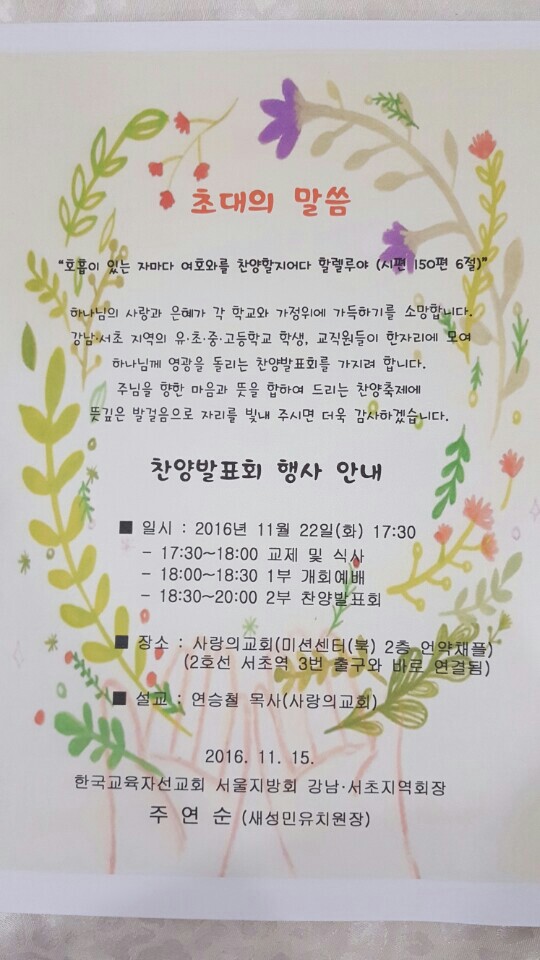 초대의 말씀
"호흡이 있는 자마다 여호와를 찬양할지어다 할렐루야 (시편 150편 6절)"
하나님의 사랑과 은혜가 각 학교와 가정위에 가득하기를 소망합니다.
강남·서초 지역의 유·초·중·고등학교 학생, 교직원들이 한자리에 모여
하나님께 영광을 돌리는 찬양발표회를 가지려 합니다.
주님을 향한 마음과 뜻을 합하여 드리는 찬양축제에
뜻깊은 발걸음으로 자리를 빛내 주시면 더욱 감사하겠습니다.
찬양발표회 행사 안내
■ 일시 : 2016년 11월 22일(화) 17:30
- 17:30~18:00 교제 및 식사
- 18:00~18:30 1부 개회예배
- 18:30~20:00 2부 찬양발표회
■ 장소 : 사랑의교회(미션센터(북) 2층 언약채플)
(2호선 서초역 3번 출구와 바로 연결됨)
■ 설교 : 연승철 목사(사랑의교회)
2016. 11. 15.
한국교육자선교회 서울지방회 강남·서초지역회장
주 연 순 (새성민유치원장)